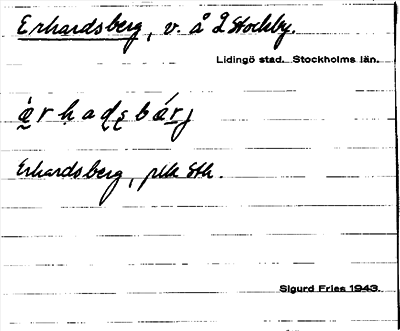 Erhardsberg, v. å L Stockby.
Lidingö stad. Stockholms län.
Erhardsberg, plk Sth.
Sigurd Fries 1943.